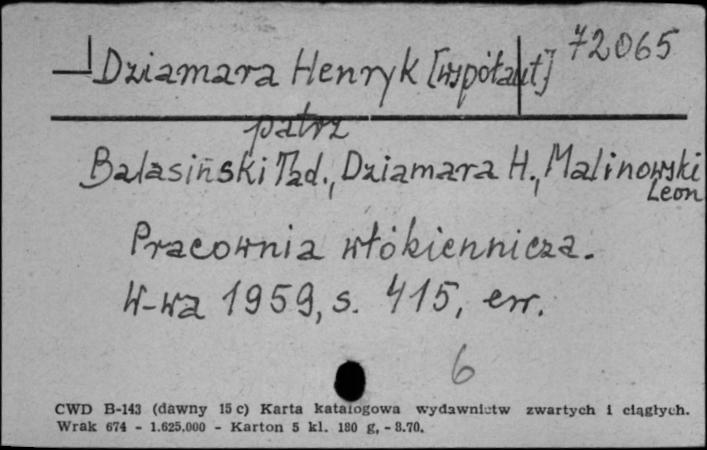 Dziamara Henryk [współaut] 72065
patrz
Balasiński Tad., Dziamara H., Malinowski Leon
Pracownia włókiennicza.
W-wa 1959, s. 415, err.
6
CWD B-143 (dawny 15 c) Karta katalogowa wydawnictw zwartych i ciągłych.
Wrak 674 - 1.625.000 - Karton 5 kl. 180 g, - 8.70.